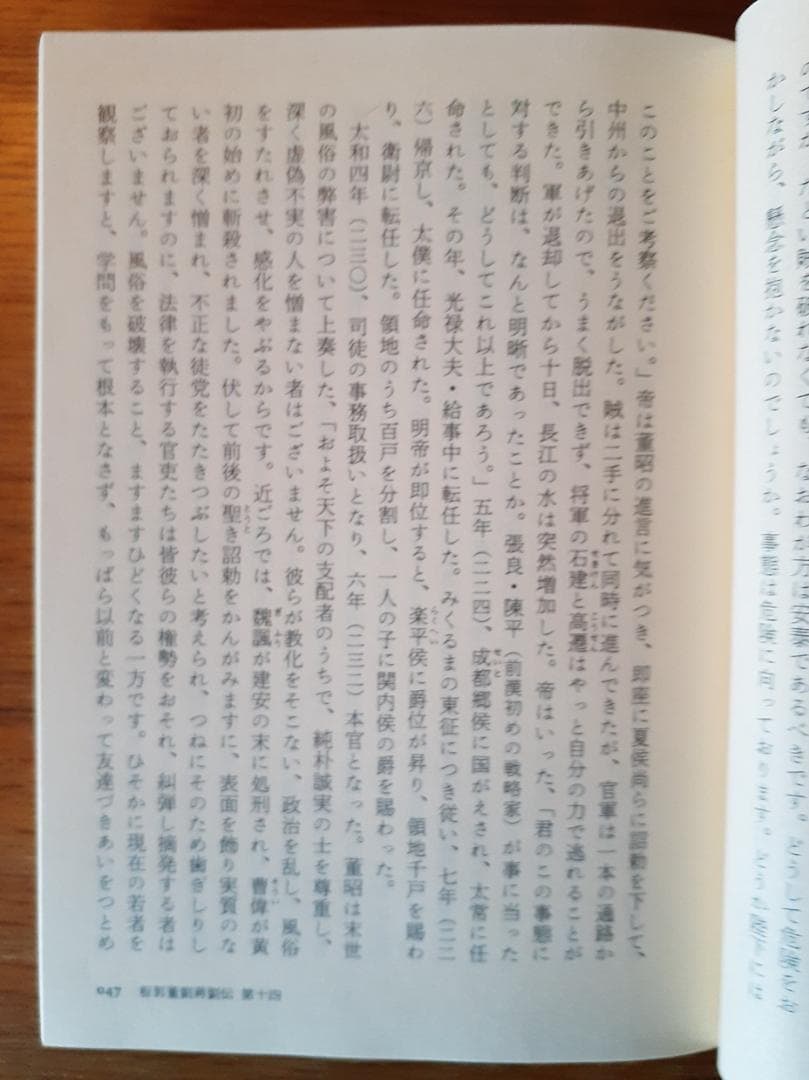 のですが、たとい賊を破れなくても、なおわが方は安泰であるべきです。どうして危険をお
かしながら、懸念を抱かないのでしょうか。事態は危険に向っております。どうか陛下には
このことをご考察ください。」帝は董昭の進言に気がつき、即座に夏侯尚らに詔勅を下して、
中州からの退出をうながした。賊は二手に分れて同時に進んできたが、官軍は一本の通路か
ら引きあげたので、うまく脱出できず、将軍の石建と高遷はやっと自分の力で逃れることが
できた。軍が退却してから十日、長江の水は突然増加した。帝はいった、「君のこの事態に
対する判断は、なんと明晰であったことか。張良・陳平(前漢初めの戦略家)が事に当った
としても、どうしてこれ以上であろう。」五年(二二四)、成都郷侯に国がえされ、太常に任
命された。その年、光禄大夫・給事中に転任した。みくるまの東征につき従い、七年(二二
六)帰京し、太僕に任命された。明帝が即位すると、楽平侯に爵位が昇り、領地千戸を賜わ
り、衛尉に転任した。領地のうち百戸を分割し、一人の子に関内侯の爵を賜わった。
太和四年(二三〇)、司徒の事務取扱いとなり、六年(二三二)本官となった。董昭は末世
の風俗の弊害について上奏した、「およそ天下の支配者のうちで、純朴誠実の士を尊重し、
深く虚偽不実の人を憎まない者はございません。彼らが教化をそこない、政治を乱し、風俗
をすたれさせ、感化をやぶるからです。近ごろでは、魏諷が建安の末に処刑され、曹偉が黄
初の始めに斬殺されました。伏して前後の聖き詔勅をかんがみますに、表面を飾り実質のな
い者を深く憎まれ、不正な徒党をたたきつぶしたいと考えられ、つねにそのため歯ぎしりし
ておられますのに、法律を執行する官吏たちは皆彼らの権勢をおそれ、糾弾し摘発する者は
ございません。風俗を破壊すること、ますますひどくなる一方です。ひそかに現在の若者を
観察しますと、学問をもって根本となさず、もっぱら以前と変わって友達づきあいをつとめ
047 程郭董劉蔣劉伝 第十四